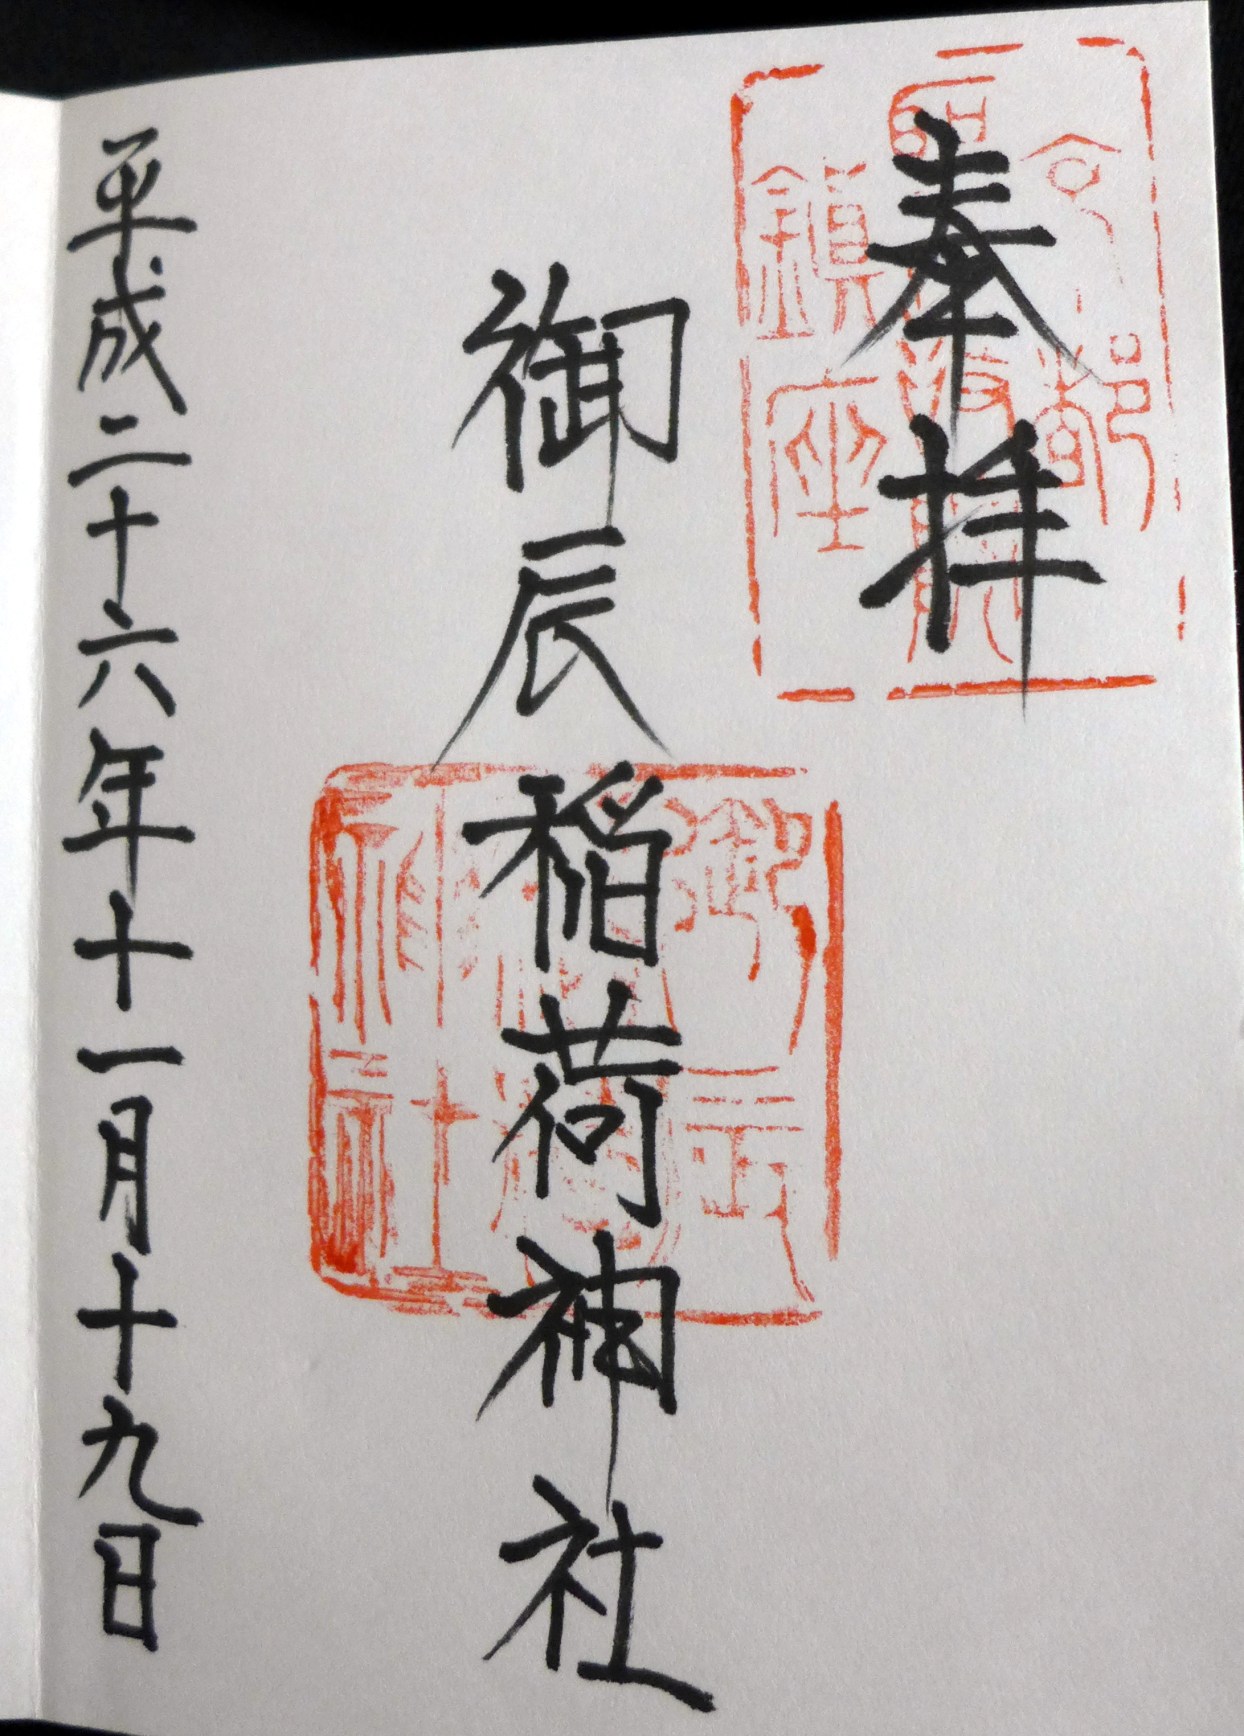 奉拝
御辰稲荷神社
平成二十六年十一月十九日
京都
鎮座